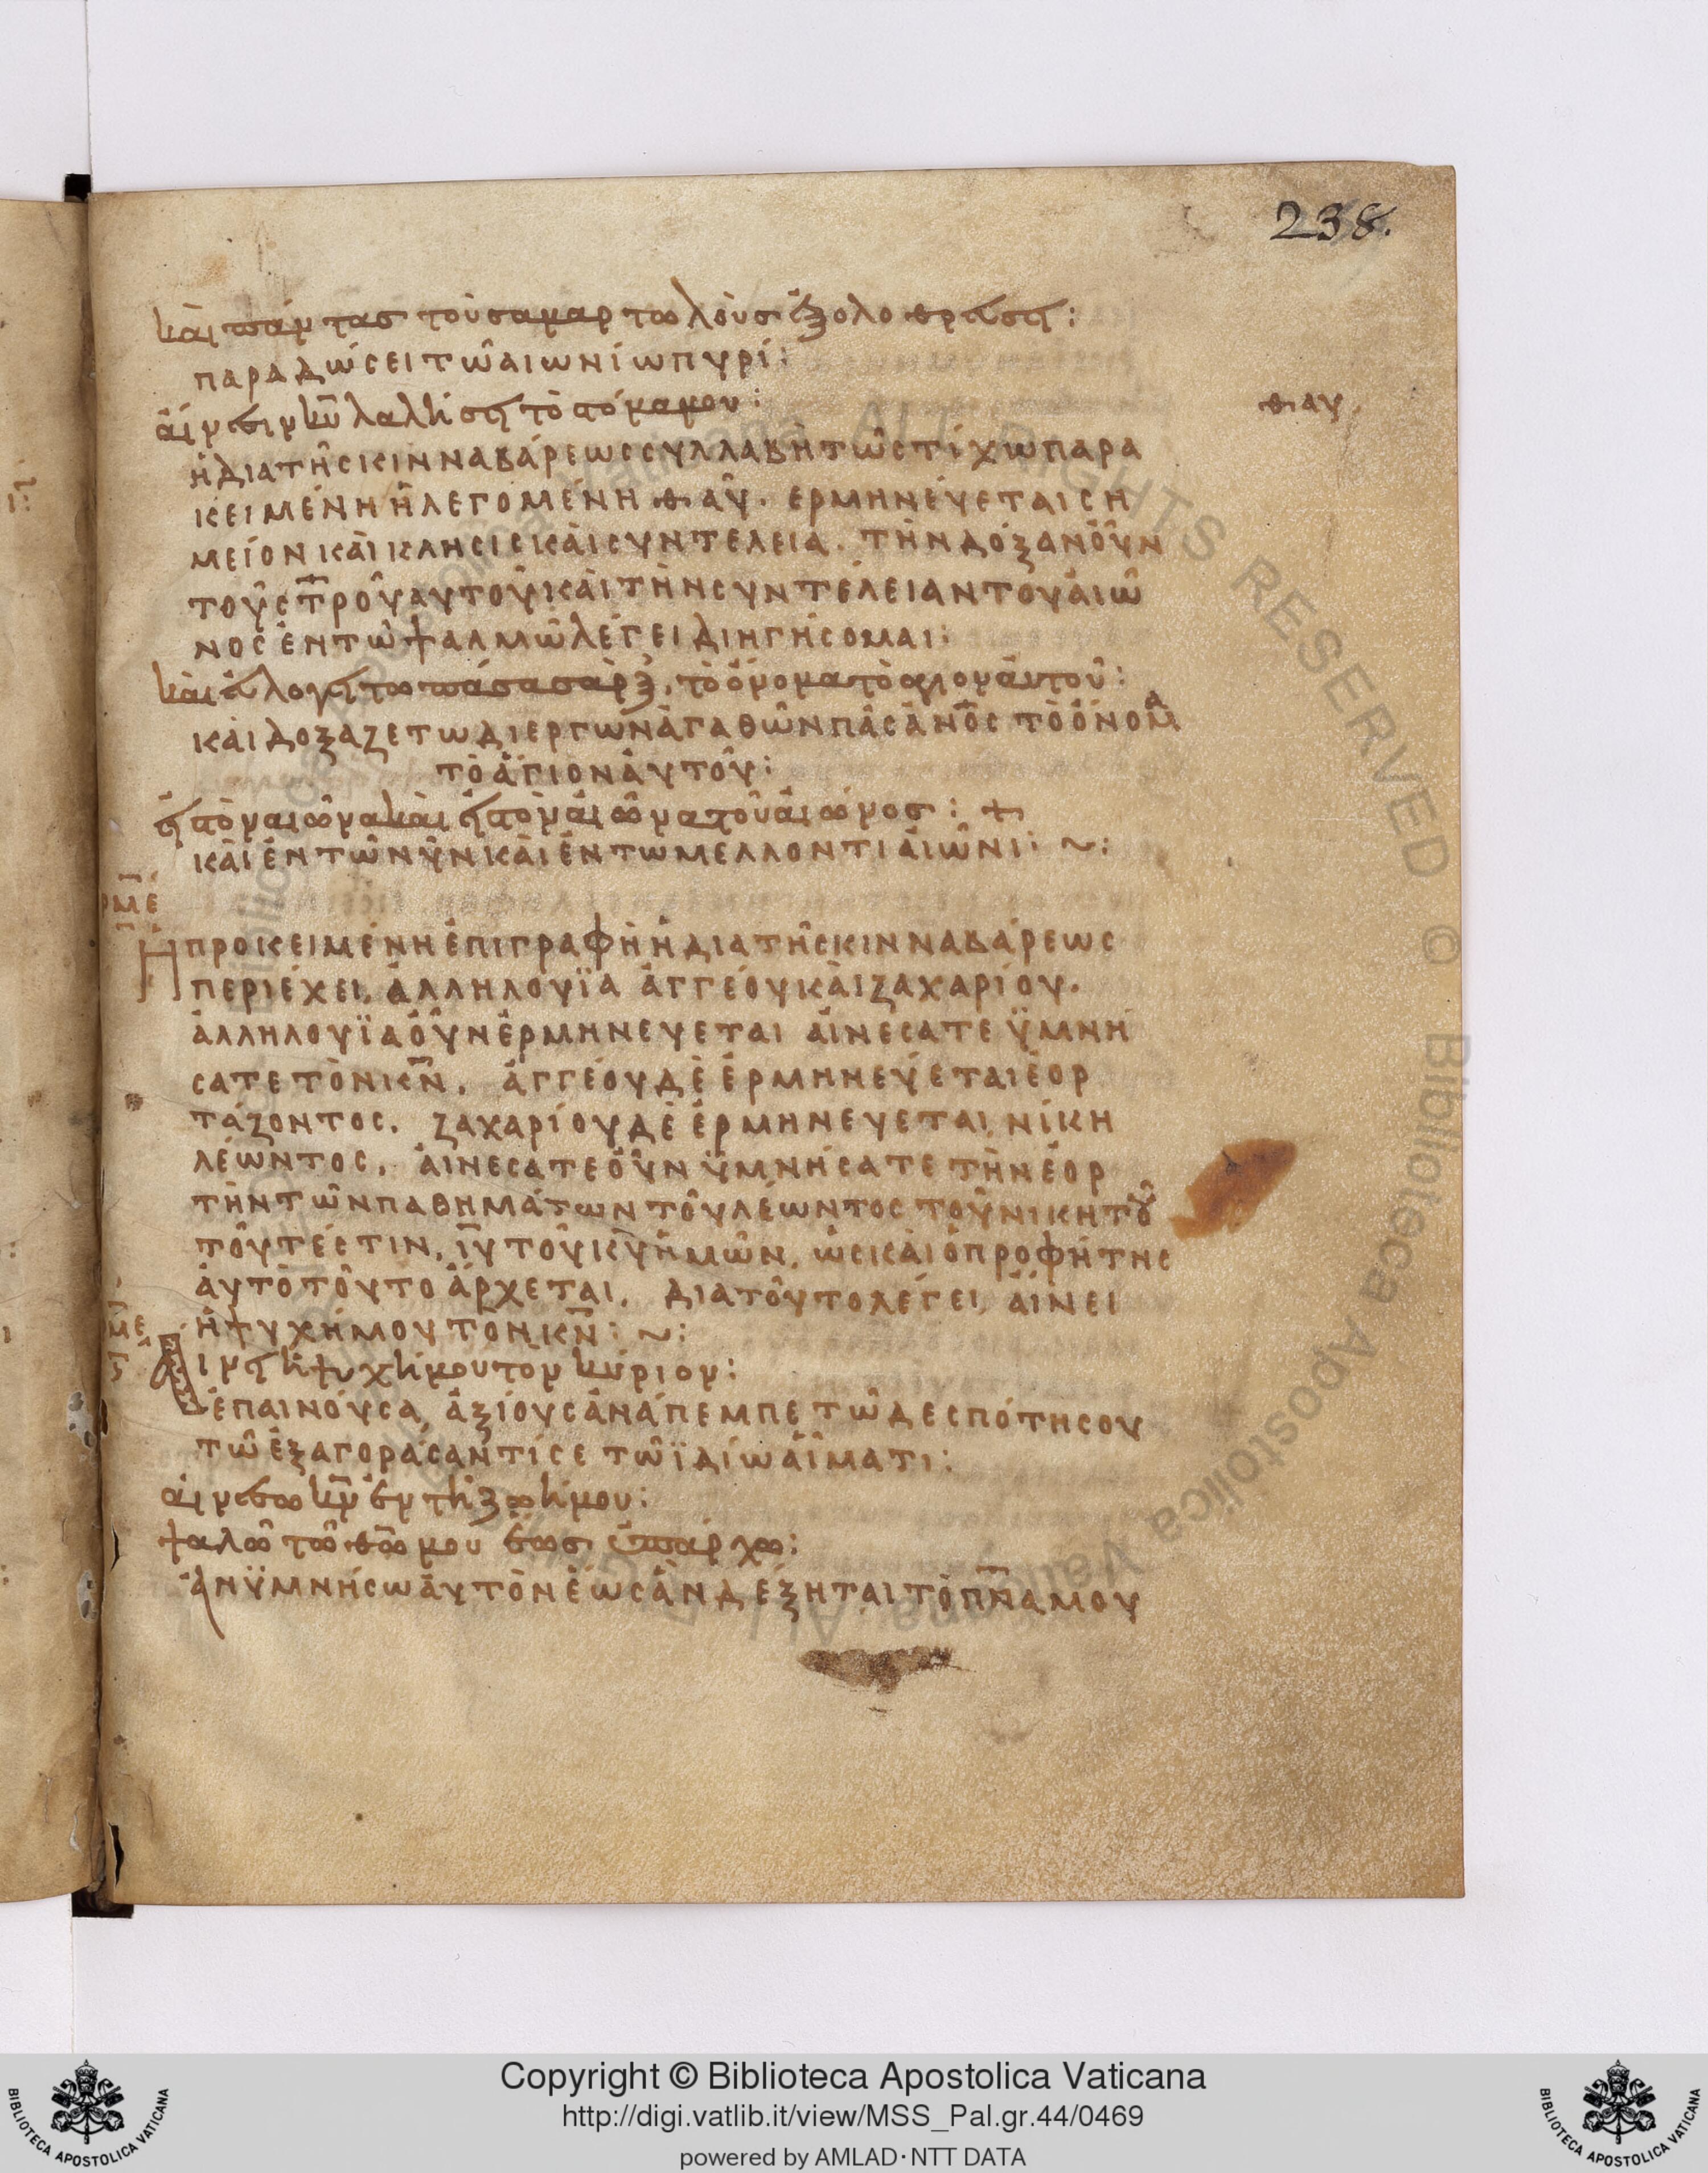 238.
καὶ πάντας τοὺς αμαρτωλοὺς ἐξολοθρεύσει :
παραδώσει τῶ αιωνίω πυρί :
ἄινεσιν κ̅υ̅ λαλήσει τὸ στόμα μου :
θαυ
ἡ διατῆς κινναβάρεως συλλαβὴ τῶ στίχω παρα
κειμένη ἡ λεγομένη θαῦ. ερμηνέυεται ση
μεῖον κὰι κλησις κὰι συντελεια. τὴν δόξαν ὀῦν
τοῦ σ̅τ̅ροῦ αυτοῦ κὰι τὴν συντέλειαν τοῦ ἀιῶ
νος ἐν τῶ ψαλμῶ λέγει διηγήσομαι :
κὰι ἐυλογείτω πάσα σὰρξ, τὸ ὄνομα τὸ ἁγιον ἀυτοῦ :
κὰι δοξαζετω δι εργων ἀγαθῶν πᾶς ἀ̅ν̅ο̅ς τὸ ὄνομα
τὸ ἅγιον ἀυτοῦ :
ἐις τὸν αιῶνα κὰι ἐις τὸν ἀιῶνα τοῦ ἀιώνος : +
κὰι ἐν τῶ νῦν κὰι ἐν τω μελλοντι ἀιῶνι : ~ :
ρ̅μ̅ε̅
Ἡ προκειμένη ἐπιγραφὴ ἡ διατῆς κινναβάρεως
περιέχει, ἀλληλουϊα ἀγγέου κὰι ζαχαρίου.
ἀλληλουϊα ὀῦν ἑρμηνευεται ἀίνεσατε ϋμνή
σατε τὸν κ̅ν̅. ἀγγέου δὲ ἑρμηνεύεται ἑορ
τάζοντος. ζαχαρίου δὲ ἑρμηνευεται, νίκη
λέωντος. ἀίνεσατε ὀῦν ϋμνήσατε τὴν ἑορ
τὴν τῶν παθημάτων τοῦ λέωντος τοῦ νικητοῦ
τοῦτέστιν, ι̅υ̅ τοῦ κ̅υ̅ ἡμῶν, ὡς κὰι ὁ προφήτης
ἀυτὸ τοῦτο ἄρχεται. διατοῦτο λέγει, ἄινει
ἡ ψυχή μου τὸν κ̅ν̅ : ~ :
Αινει ἡ ψυχή μου τὸν κύριον :
ἐπαινόυσα, ἀξίους ἀνάπεμπε τῶ δεσπότη σου
τῶ ἐξαγοράσαντί σε τῶ ϊδίω ἅιματι :
ἀινέσω κ̅ν̅ ἐν τῆ ζωῆ μου :
ψαλῶ τῶ θ̅ω̅ μου ἕως ὑπάρχω :
ἀνϋμνήσω ἀυτὸν ἕως ἀνδέξηται τὸ π̅ν̅α μου
Copyright © Biblioteca Apostolica Vaticana
http://digi.vatlib.it/view/MSS_Pal.gr.44/0469
powered by AMLAD·NTT DATA
BIBLIOTECA APOSTOLICA VATICANA
BIBLIOTECA APOSTOLICA VATICANA